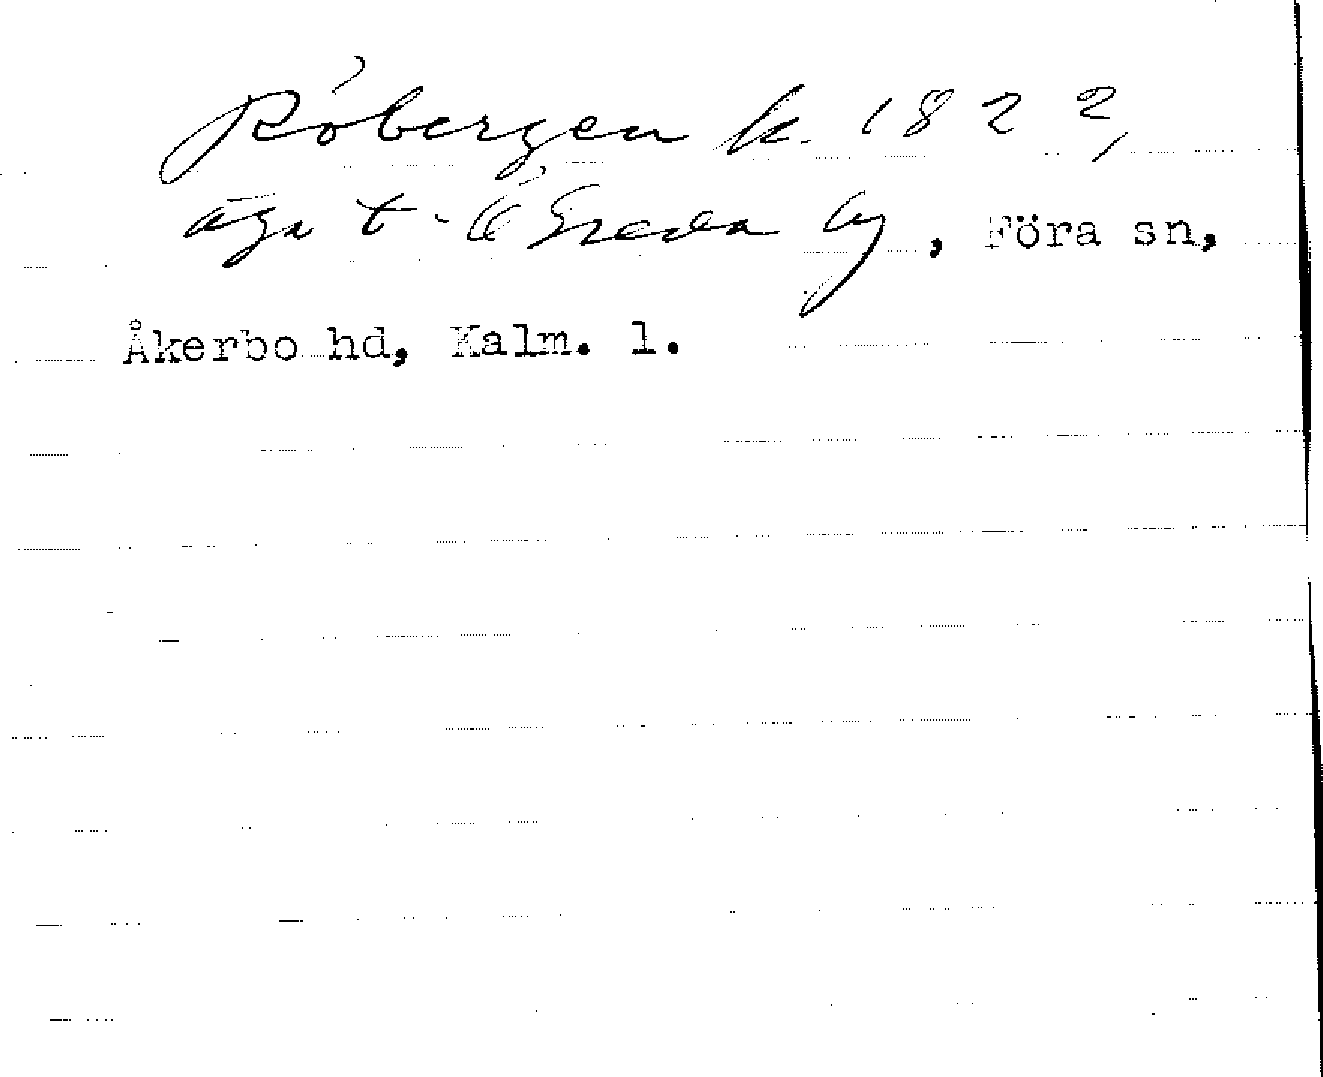 Röbergen k. 1822,
äga t. Ö Greda by, Föra sn,
Åkerbo hd, Kalm. l.